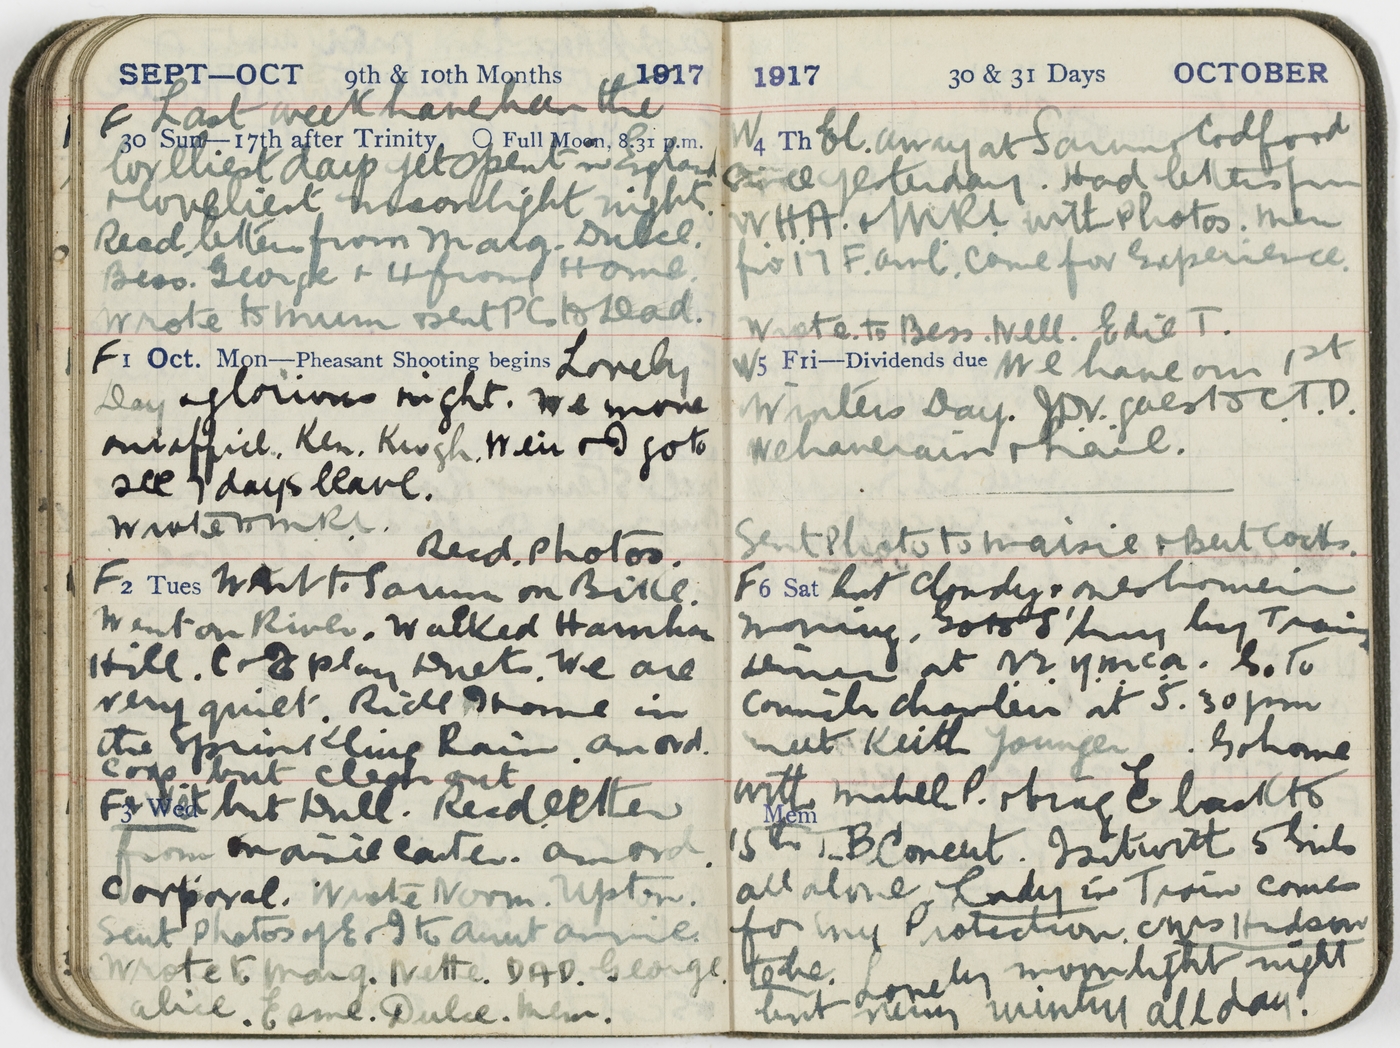 SEPT—OCT 9th & 10th Months 1917
F Last week have been the
30 Sun—17th after Trinity. Full Moon, 8.31 p.m.
lovelliest days yet spent in England
& loveliest moonlight night.
Recd. letters from Marg. Dulcie.
Bess. George & 4 from Home.
Wrote to Mum & sent PCs to Dead.
F 1 Oct. Mon—Pheasant Shooting begins Lovely
Day & glorious night. We move
our office. Ken. Keogh. Weir & I go to
see 7 days leave.
Wrote to MRL.
Recd. Photos.
F 2 Tues Went to Sarum on Bike.
Went on River. Walked Harnham
Hill. C & E play Duets. We are
very quiet. Ride Home in
the Sprinkling Rain. am ord.
Corp. but clean out
F 3 Wed but Dull. Recd letter
from Maisie Carter. am ord.
Corporal. Wrote Norm. Upton.
Sent Photos of E & I to Aunt Annie.
Wrote to Marg. Nette. DAD. George
Alice. Esme. Dulcie. Mem.
1917 30 & 31 Days OCTOBER
W 4 Th El. away at Sarum Codford
since yesterday. Had letters from
WHA. & MRL with Photos. Men
fro 17 F. Amb. Came for Experience.
Wrote to Bess. Nell. Edie T.
W 5 Fri—Dividends due We have our 1st
Winters Day. JDV. goes to C.T.D.
We have rain & hail.
Sent Photo to Maisie & Bert Cocks.
F 6 Sat but cloudy & ones home in
morning. Go to S'bury by Train
Dinner at NZ YMCA. Go To
Council chambers at 5.30 pm
meet Keith Younger. Go home
with Mabel P. & bring E back to
Mem
15th T.B Concert. I sit with 5 Girls
all alone. Lady in Train comes
for my Protection. Mrs Hudson
to be. Lovely moonlight night
but very wintry all day.